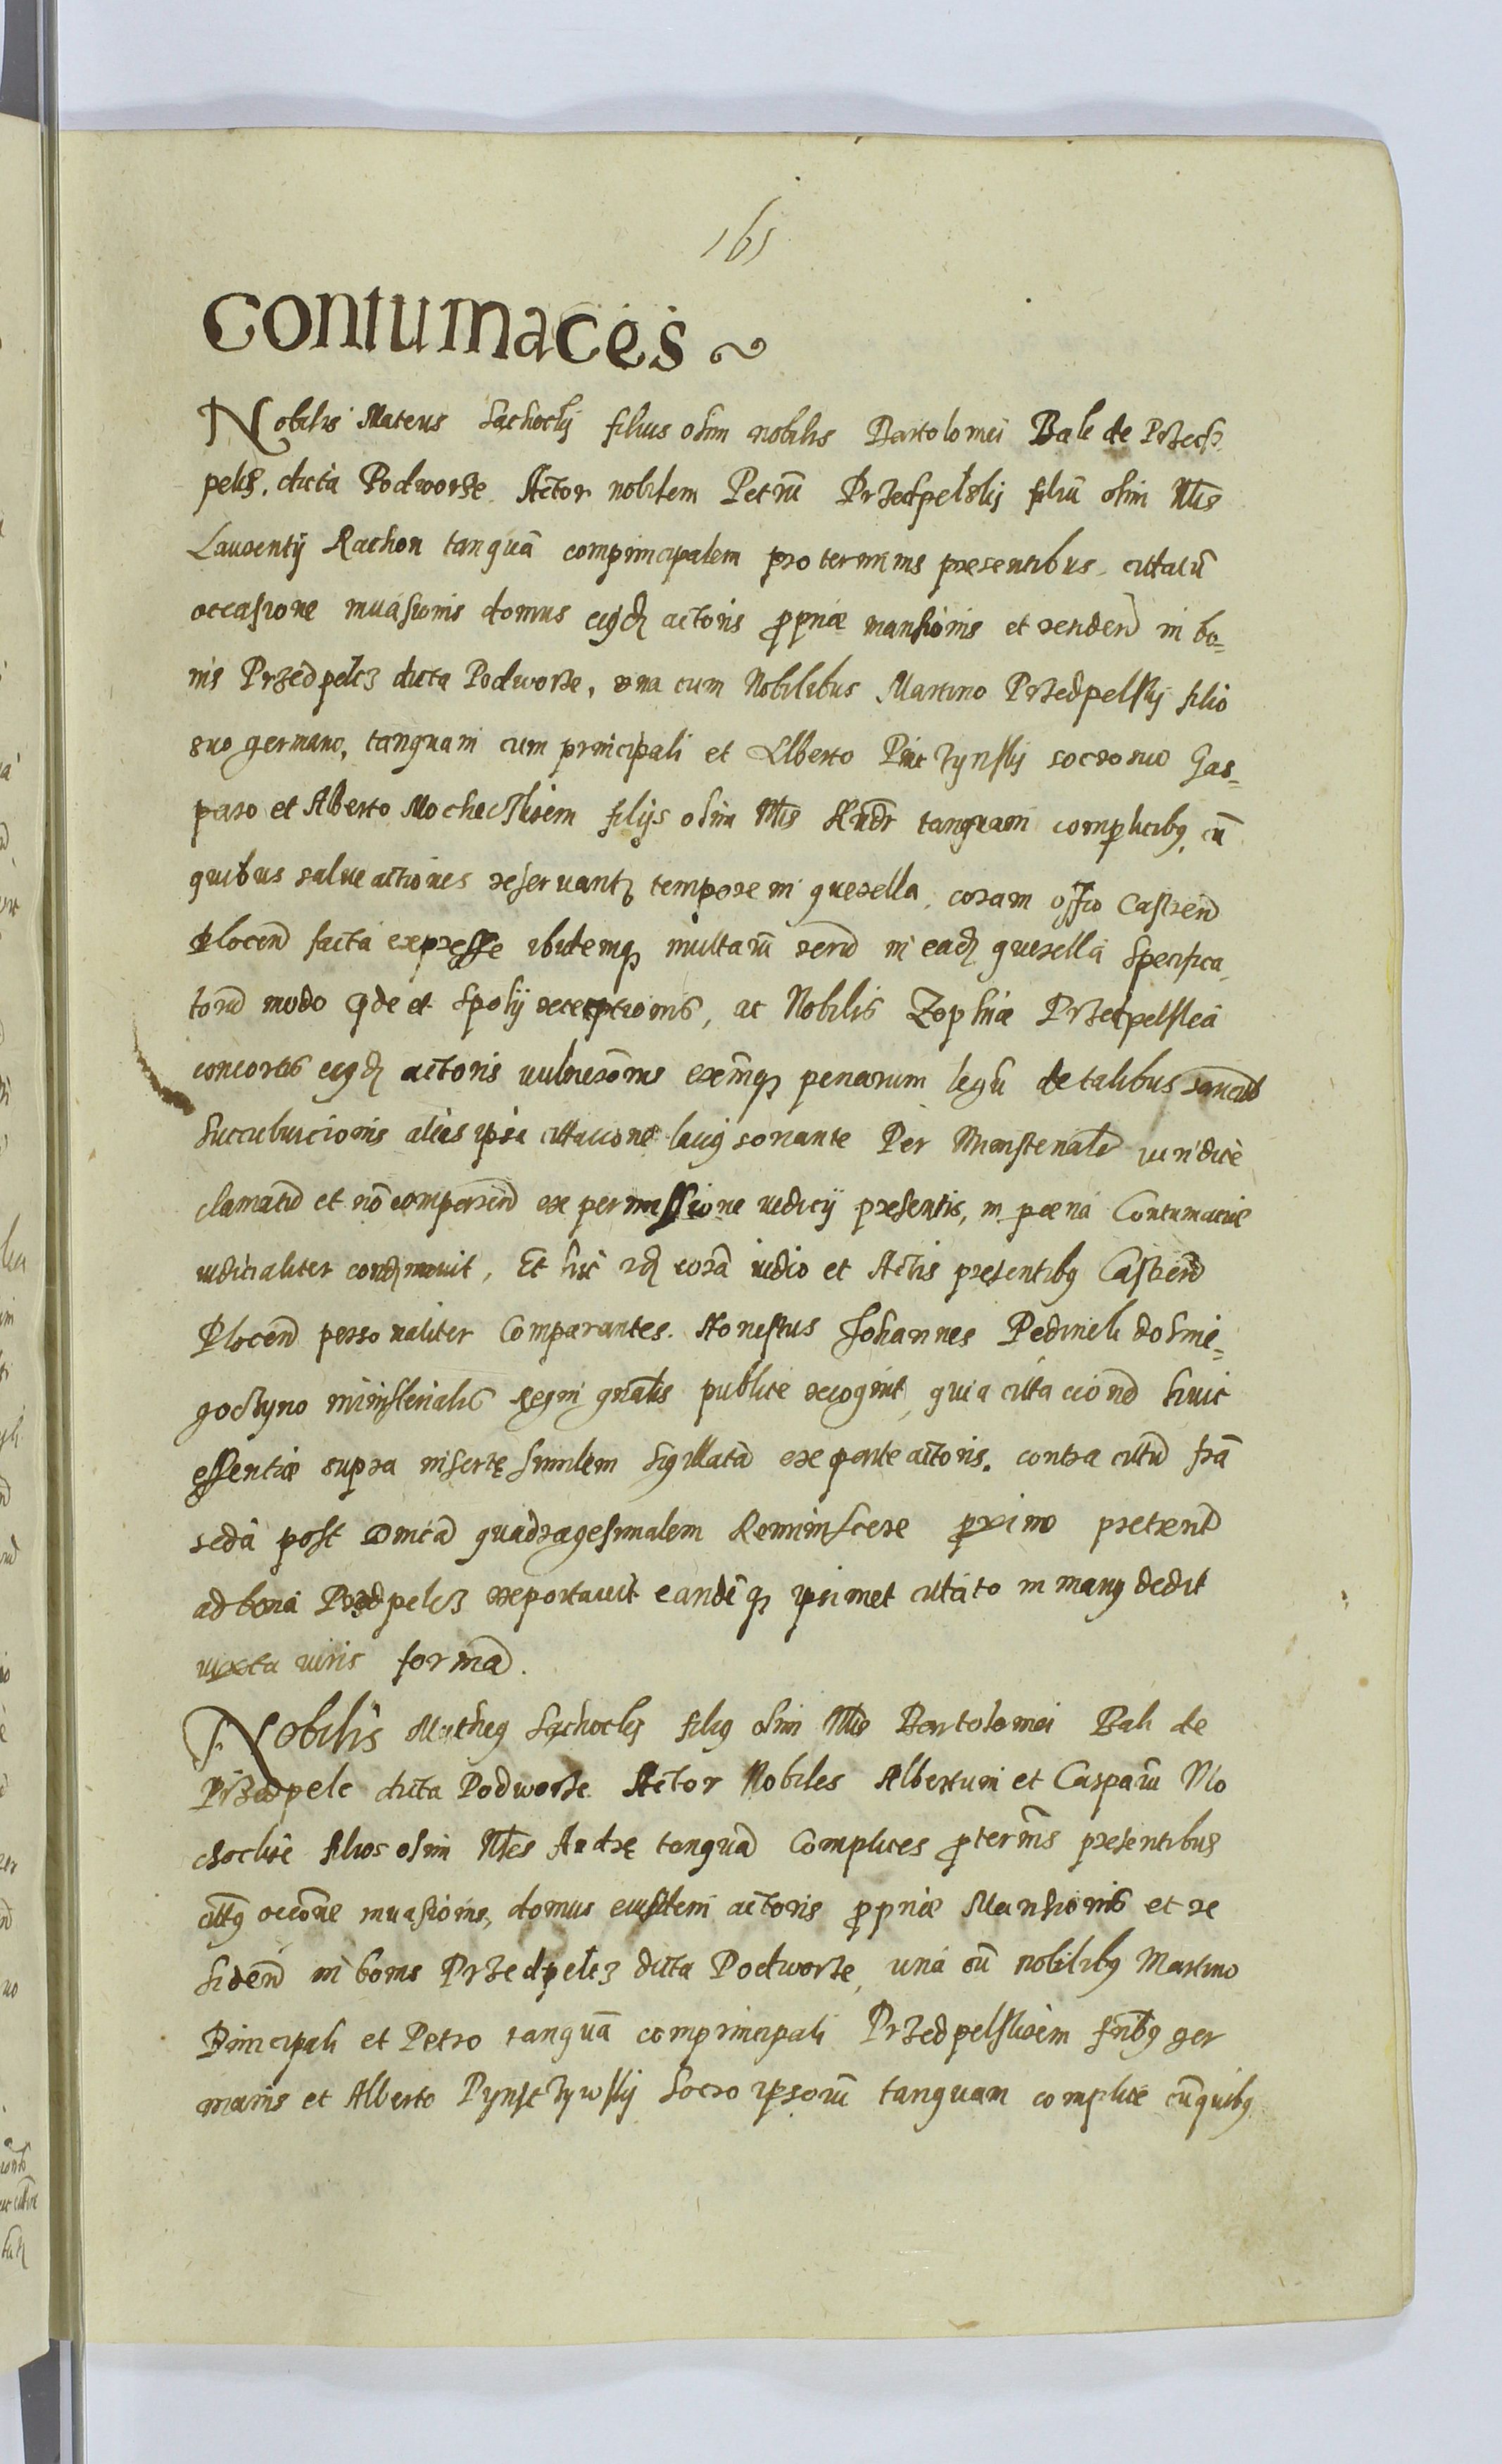 161
Contumaces
Nobilis Mateus Lachoclij filius olim nobilis Bartolomei Bale de Przedt
pelcz. dicta Podworze. Actor nobilem Petrũ Przedpelskij filiũ olim Nlis
Laurentij Rachon tanquã comprincipalem pro terminis presentibus citatũ
occasione inuasionis domus eiusd actoris propriæ mansionis et residen in bo-
nis Przedpelcz dicta Podworze, vna cum Nobilibus Martino Przedpelskij filio
suo germano, tanquam cum principali et Alberto socro suo Gas-
paro et Alberto filijs olim Nlis Andr tanquam complicibꝫ, cũ
quibus salue actiones reseruant tempore in querella, coram offo Castren
Plocen facta expresse ibidemqꝫ multarũ rerũ in ead querella specifica
torũ modo et spolij receptionis, ac Nobilis Zophiæ Przedpelska
consortis eiusd actoris vulneraõnis penarum legũ de talibus
succubuicionis alias ipsa citacione laciꝯ sonante Per Ministerialẽ iuridice
clamatũ et nõ comparen ex permissione iudicij presentis, in pœna Contumaciæ
iudicialiter condemnauit, Et hic id corã iudio et Actis presentibꝫ Castren
Plocen personaliter Comparantes. Honestus Johannes Pedinek do Smie-
goczyno ministerialis Regni gnalis publice recognit, quia citacionẽ huic
essentiæ supra insertę similem sigillatã ex parte actoris. contra citũ frã
scdã post dnicã quadragesimalem Reminiscere proximo preteren
ad bona Przedpelcz reportauit eandẽqꝫ ipsimet citato in manꝯ dedit
iuxta iuris formã.
Nobilis Matheꝯ Lachoclij filiꝯ olim Nlis Bartolomei Bali de
Przedpelc dicta Podworze. Actor Nobiles Albertum et Casparũ Mo
filios olim Nles Andrę tanquã Complices pro termis presentibus
citꝯ occõne inuasionis, domus eiusdem actoris propriæ Mansionis et re
siden in bonis Przedpelcz dicta Podworze, una cũ nobilibꝫ Martino
Principali et Petro tanquã comprincipali Przedpelskiem frbꝫ ger
manis et Alberto socro ipsorũ tanquam complice cũ quibꝫ